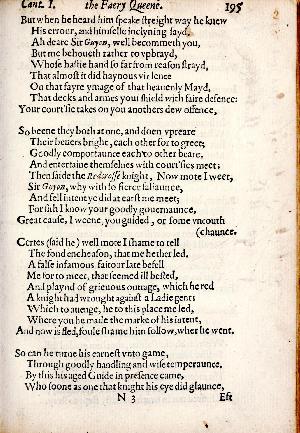 Cant. I. the Faery Queene. 195
But when he heard him speake streight way he knew
His errour, and himselfe inclyning sayd.
Ah deare Sir Guyon, well becommeth you,
But me behoueth rather to vpbrayd,
Whose hastie hand so far from reason strayd,
That almost it did haynous violence
On that fayre ymage of that heauenly Mayd,
That decks and armes you shield with faire defence:
Your court'sie takes on you anothers dew offence,
So beene they both at one, and doen vpreare
Their beuers bright, each other for to greet;
Goodly comportaunce each to other beare,
And entertaine themselues with court'sies meet;
Then saide the Redcrosse knight, Now mote I weet,
Sir Guyon, why with so fierce saliaunce,
And fell intent ye did at earst me meet;
For sith I know your goodly gouernaunce,
Great cause, I weene, you guided, or some vncouth
(chaunce.
Certes (said he) well mote I shame to tell
The fond encheason, that me hether led,
A false infamous faitour late befell
Me for to meet, that seemed ill bested,
And playnd of grieuous outrage, which he red
A knight had wrought against a Ladie gent;
Which to auenge, he to this place me led,
Where you he made the marke of his intent,
And now is fled, foule shame him follow, wher he went.
So can he turne his earnest vnto game,
Through goodly handling and wise temperaunce,
By this his aged Guide in presence came,
Who soone as one that knight his eye did glaunce,
N 3 Eft